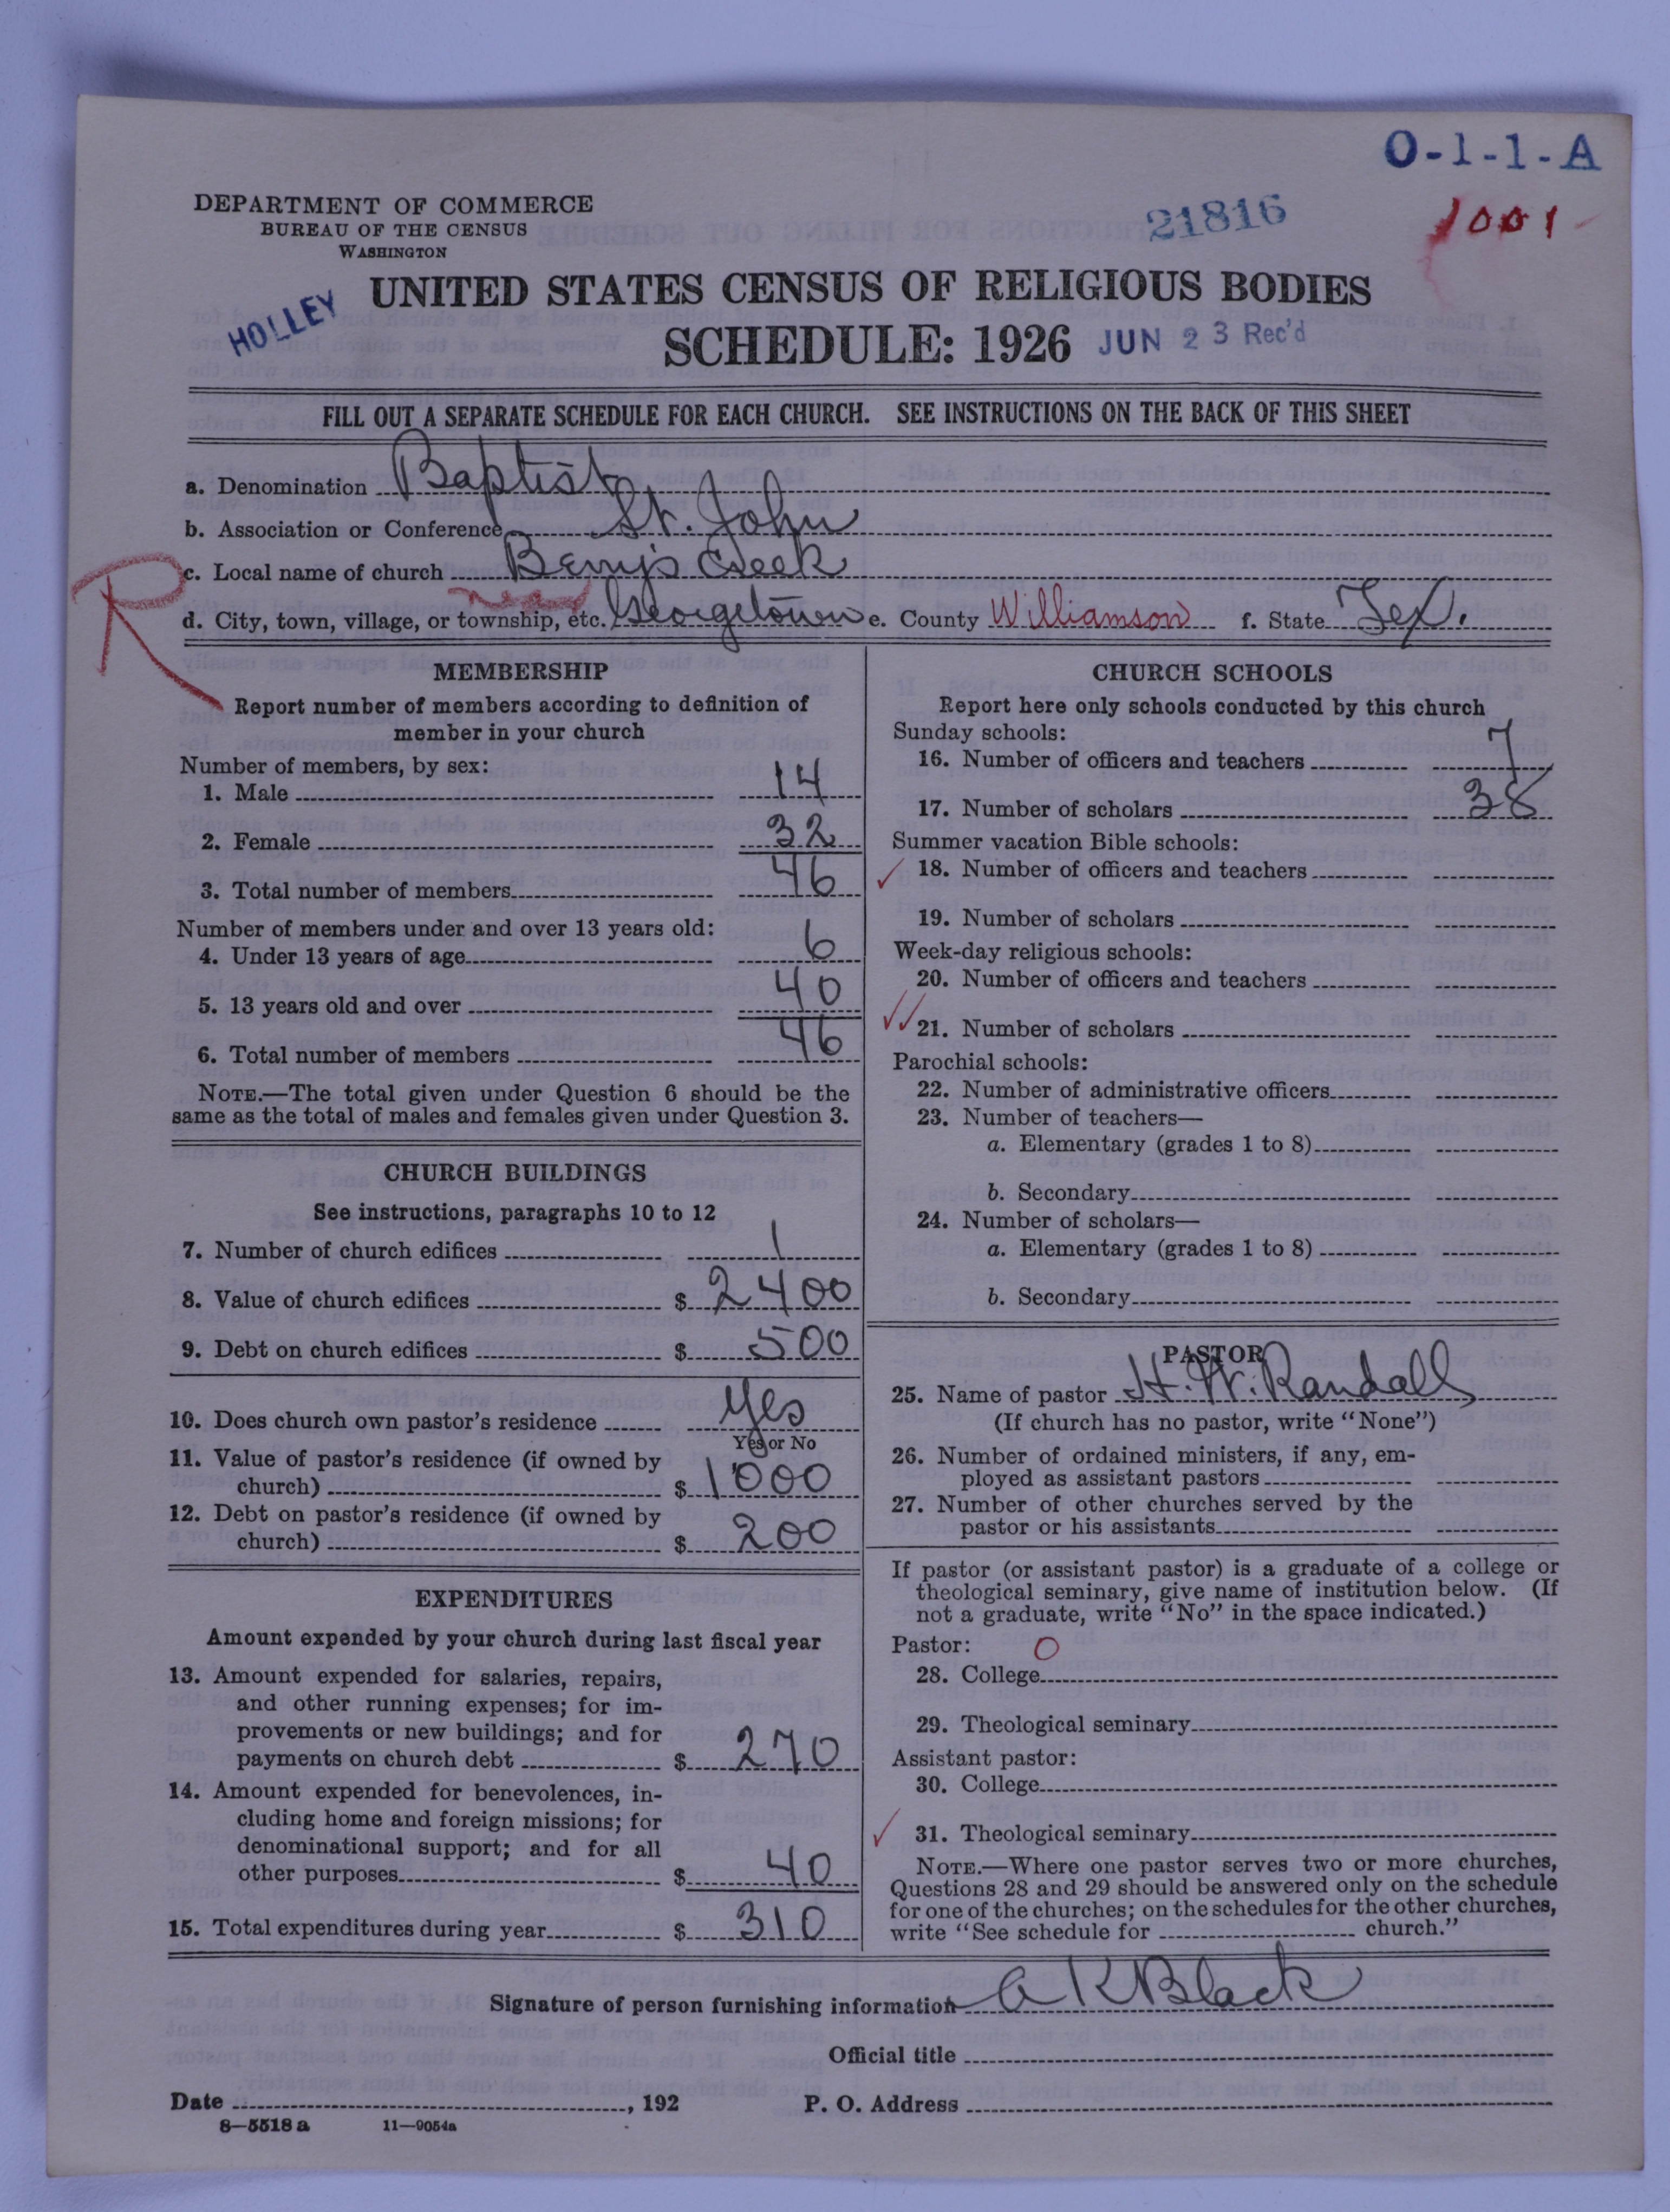 O-1-1-A
DEPARTMENT OF COMMERCE
BUREAU OF THE CENSUS
WASHINGTON
21816
1001
HOLLEY
UNITED STATES CENSUS OF RELIGIOUS BODIES
SCHEDULE: 1926
JUN 23 Rec'd
FILL OUT A SEPARATE SCHEDULE FOR EACH CHURCH. SEE INSTRUCTIONS ON THE BACK OF THIS SHEET
a. Denomination Baptist
b. Association or Conference St. John
c. Local name of church Berrys Creek
R
near
d. City, town, village, or township, etc. Georgetown e. County Williamson f. State Tex.
MEMBERSHIP
Report number of members according to definition of
member in your church
Number of members, by sex:
1. Male 14
2. Female 32
3. Total number of members 46
Number of members under and over 13 years old:
4. Under 13 years of age 6
5. 13 years old and over 40
6. Total number of members 46
NOTE.—The total given under Question 6 should be the
same as the total of males and females given under Question 3.
CHURCH BUILDINGS
See instructions, paragraphs 10 to 12
7. Number of church edifices 1
8. Value of church edifices $ 2400
9. Debt on church edifices $ 500
10. Does church own pastor's residence Yes
Yes or No
11. Value of pastor's residence (if owned by
church) $ 1000
12. Debt on pastor's residence (if owned by
church) $ 200
EXPENDITURES
Amount expended by your church during last fiscal year
13. Amount expended for salaries, repairs,
and other running expenses; for im-
provements or new buildings; and for
payments on church debt $ 270
14. Amount expended for benevolences, in-
cluding home and foreign missions; for
denominational support; and for all
other purposes $ 40
15. Total expenditures during year $ 310
CHURCH SCHOOLS
Report here only schools conducted by this church
Sunday schools:
16. Number of officers and teachers 7
17. Number of scholars 38
Summer vacation Bible schools:
18. Number of officers and teachers
19. Number of scholars
Week-day religious schools:
20. Number of officers and teachers
21. Number of scholars
Parochial schools:
22. Number of administrative officers
23. Number of teachers—
a. Elementary (grades 1 to 8)
b. Secondary
24. Number of scholars—
a. Elementary (grades 1 to 8)
b. Secondary
PASTOR
25. Name of pastor H. W. Randall
(If church has no pastor, write "None")
26. Number of ordained ministers, if any, em-
ployed as assistant pastors
27. Number of other churches served by the
pastor or his assistants
If pastor (or assistant pastor) is a graduate of a college or
theological seminary, give name of institution below. (If
not a graduate, write "No" in the space indicated.)
Pastor: O
28. College
29. Theological seminary
Assistant pastor:
30. College
31. Theological seminary
NOTE.—Where one pastor serves two or more churches,
Questions 28 and 29 should be answered only on the schedule
for one of the churches; on the schedules for the other churches,
write "See schedule for church."
Signature of person furnishing information A K Black
Official title
Date , 192 P. O. Address
8—5518 a 11—9054a